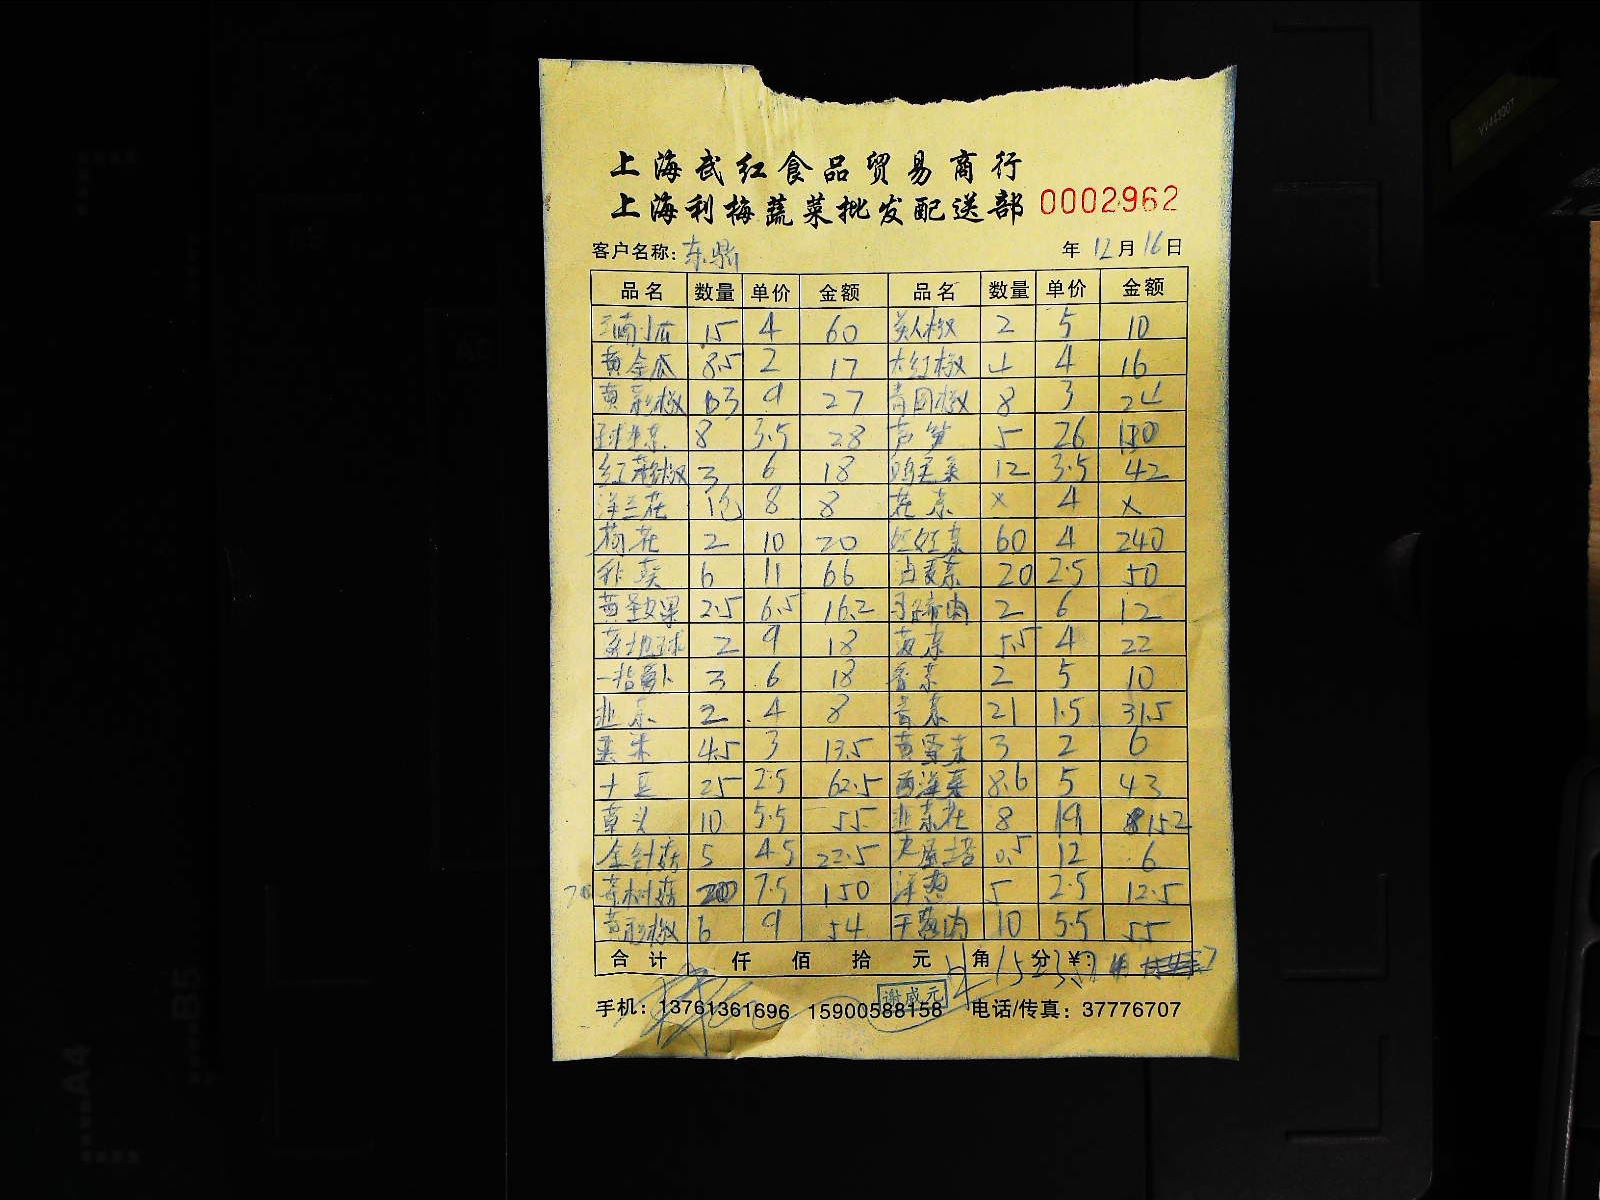 上海武红食品贸易商行
上海利梅蔬菜批发配送部 0002962
客户名称: 东 年 12月16日
品名 数量 单价 金额 品名 数量 单价 金额
15 4 60 美人椒 2 5 10
黄金瓜 8.5 2 17 大红椒 4 4 16
黄彩椒 3 9 27 青园椒 8 3 24
球生菜 8 3.5 28 芦笋 5 26 130
3 6 18 鸡毛菜 12 3.5 42
洋兰花 1包 8 8 花菜 × 4 ×
荷花 2 10 20 60 4 240
秋葵 6 11 66 油麦菜 20 2.5 50
黄圣女果 2.5 6.5 16.2 马蹄肉 2 6 12
2 9 18 菠菜 5.5 4 22
一指萝卜 3 6 18 香菜 2 5 10
韭菜 2 4 8 青菜 21 1.5 31.5
玉米 4.5 3 13.5 3 2 6
土豆 25 2.5 62.5 西洋菜 8.6 5 43
草头 10 5.5 55 韭菜花 8 19 152
金针菇 5 4.5 22.5 0.5 12 6
茶树菇 20 7.5 150 洋葱 5 2.5 12.5
黄彩椒 6 9 54 10 5.5 55
合计 仟 佰 拾 元 角 分 ¥:
谢威元
手机: 13761361696 15900588158 电话/传真: 37776707